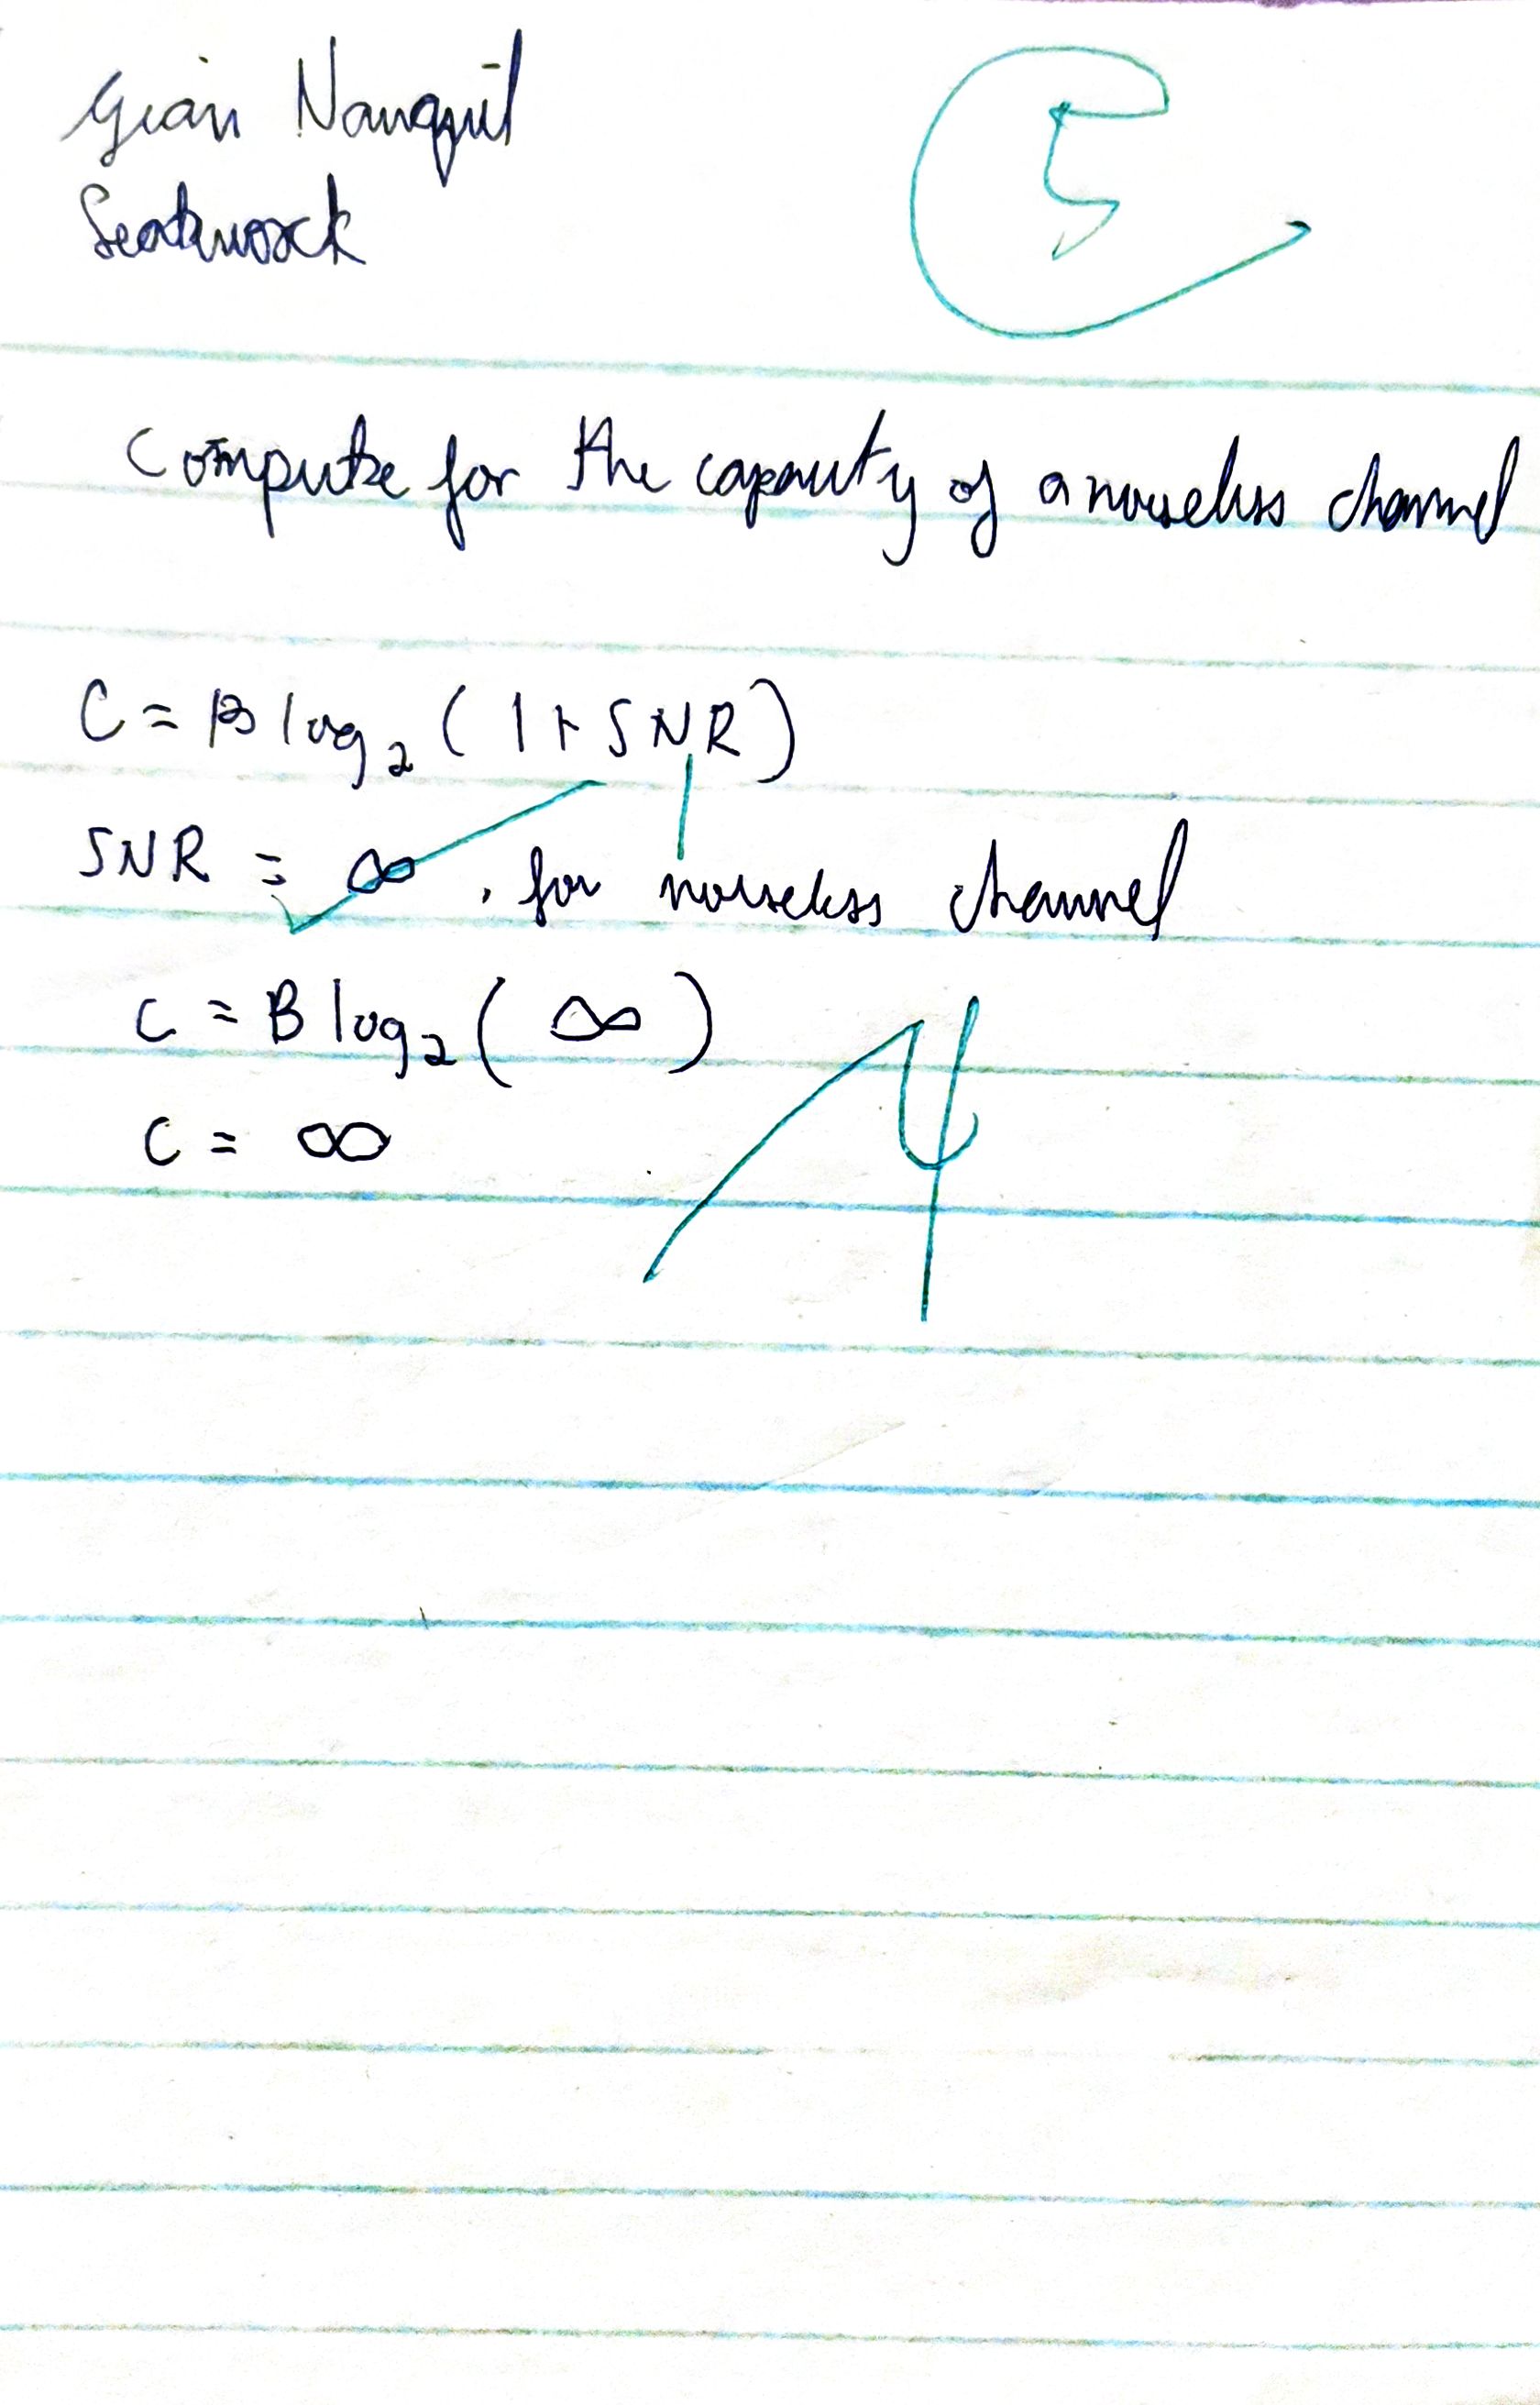 Gian Nanquil
Seatwork
5
Compute for the capacity of a noiseless channel
C = B log₂ (1 + SNR)
SNR = ∞, for noiseless channel
C = B log₂ (∞)
C = ∞